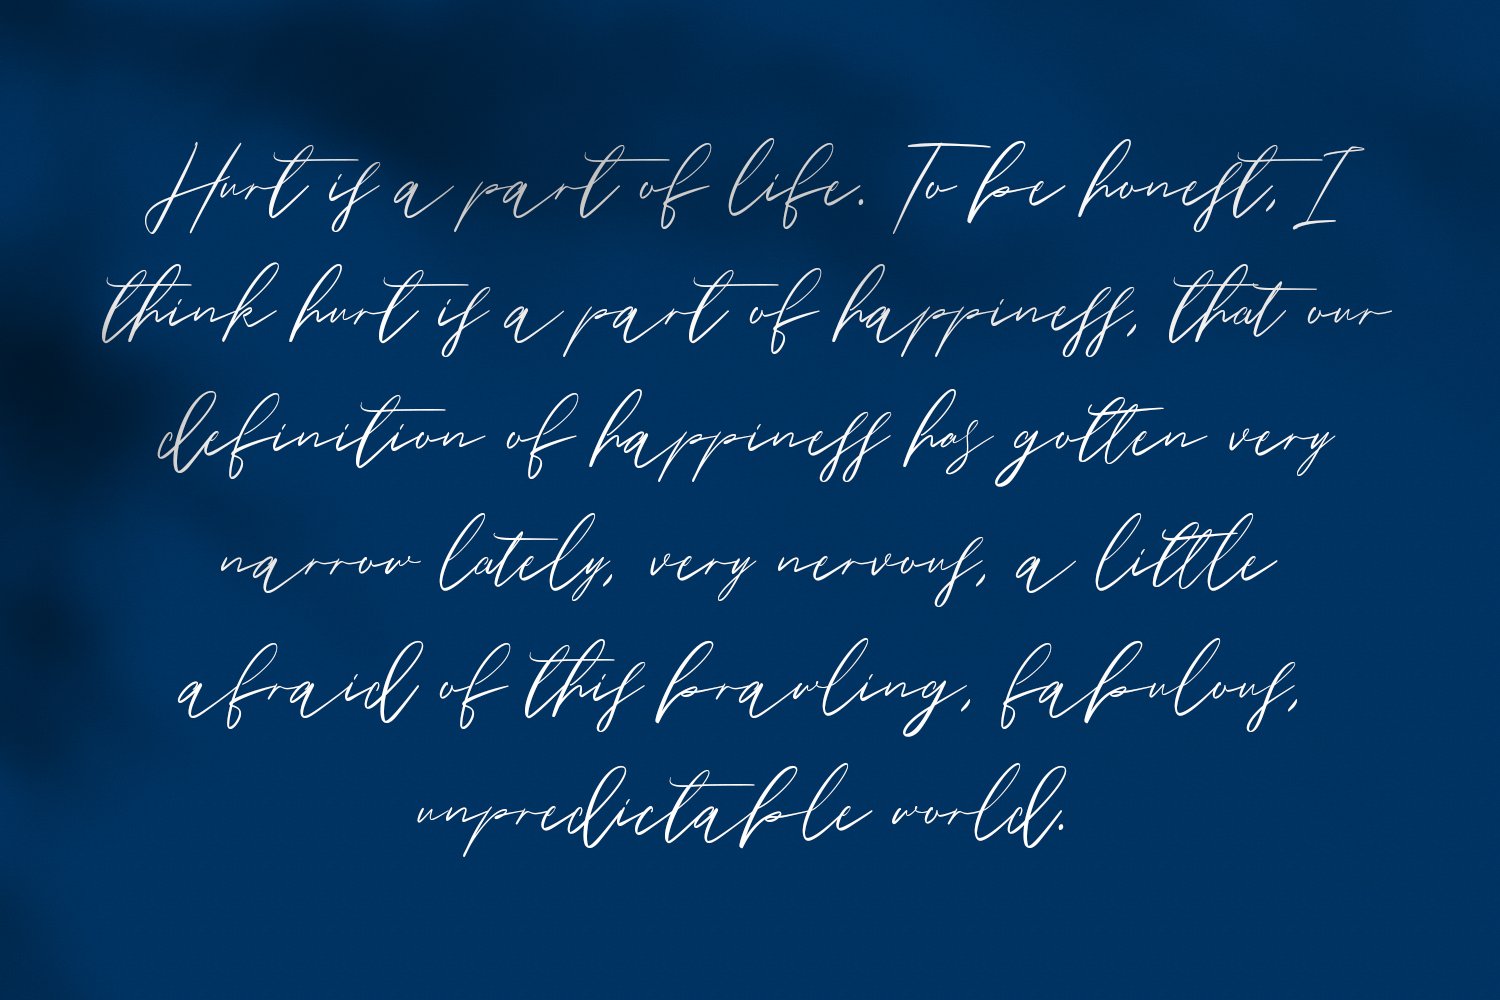 Hurt is a part of life. To be honest, I
think hurt is a part of happiness, that our
definition of happiness has gotten very
narrow lately, very nervous, a little
afraid of this brawling, fabulous,
unpredictable world.